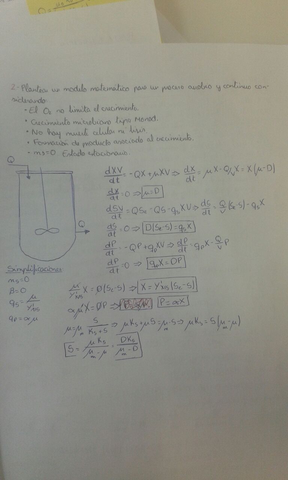 2.- Plantea un modelo matemático para un proceso aerobio y continuo con-
siderando:
• El O₂ no limita el crecimiento
• Crecimiento microbiano tipo Monod.
• No hay muerte celular ni lisis
• Formación de producto asociada al crecimiento.
• ms=0 Estado estacionario
Q
dXV/dt = -QX+μXV ⇒ dX/dt = μX-Q/V X = X(μ-D)
dX/dt = 0 ⇒ μ=D
dSV/dt = QS₀-QS-qsXV ⇒ dS/dt = Q/V (S₀-S)-qsX
dS/dt = 0 ⇒ D(S₀-S)=qsX
dP/dt = -QP+qpXV ⇒ dP/dt = qpX-Q/V P
dP/dt = 0 ⇒ qpX=DP
Q
Simplificaciones
ms=0
β=0
qs= μ/Yxs
qp=αμ
μ/Yxs X = D(S₀-S) ⇒ X = Yxs(S₀-S)
αμX = DP ⇒ P=αX
μ=μm S/(Ks+S) ⇒ μKs+μS=μmS ⇒ μKs=S(μm-μ)
S = μKs/(μm-μ) = DKs/(μm-D)